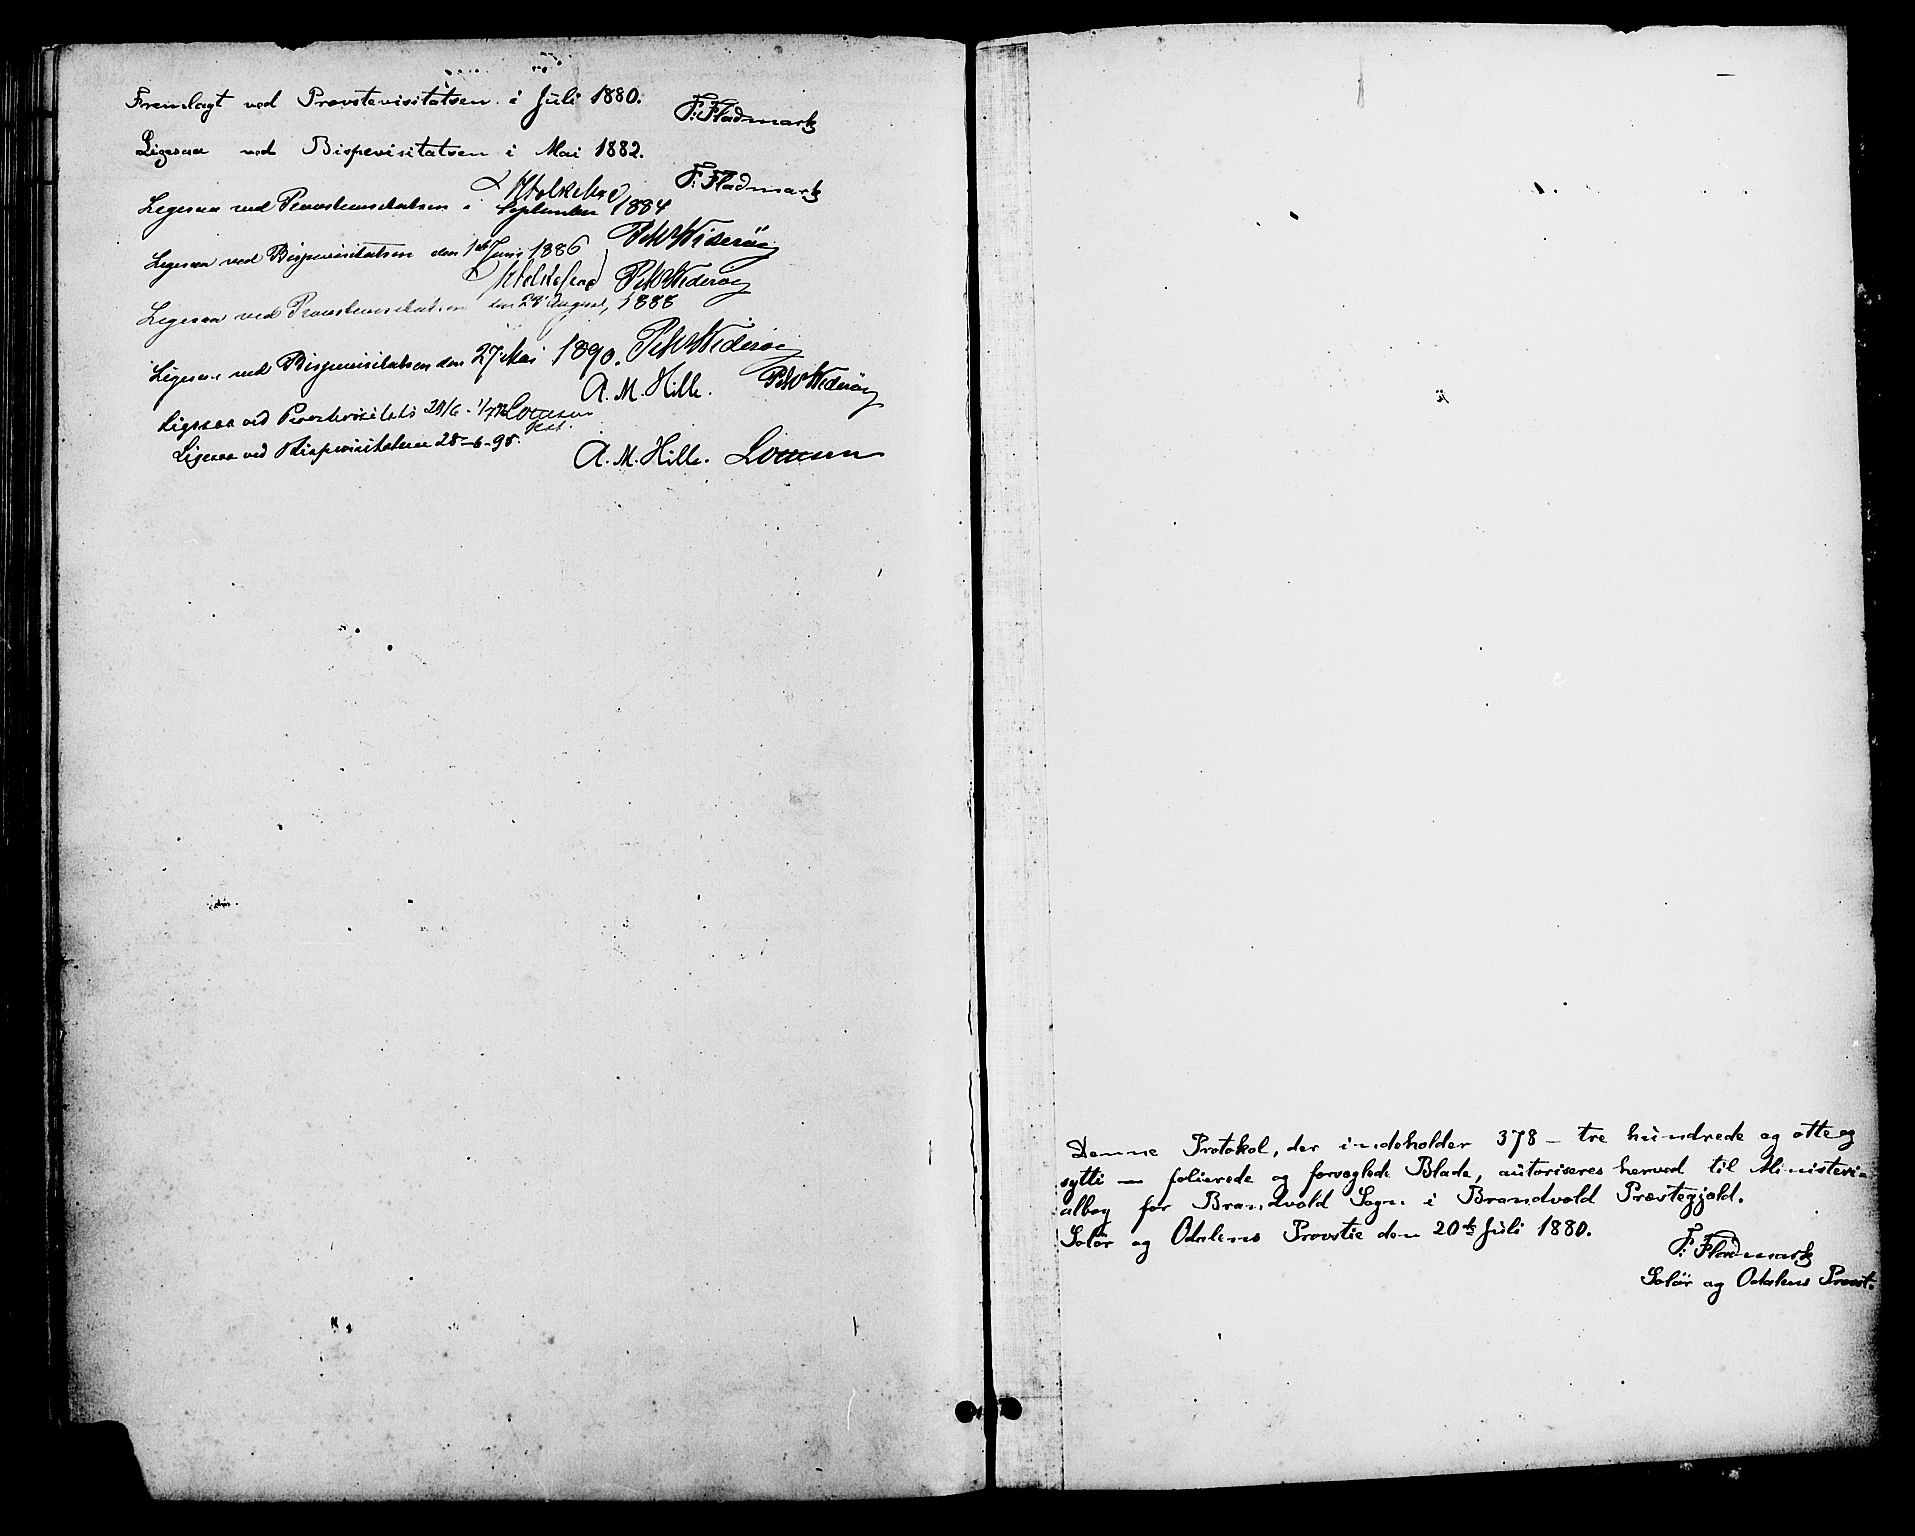 Fremlagt ved Provstevisitatsen i Juli 1880.
F. Fladmark
Ligesaa ved Bispevisitatsen i Mai 1882.
F. Fladmark
Ligesaa ved Provstevisitatsen i September 1884
Ligesaa ved Bispevisitatsen den 1ste Juni 1886
Ligesaa ved Provstevisitatsen den August, 1888
Ligesaa ved Bispevisitatsen den 27 Mai 1890.
A. M. Hille.
Ligesaa ved Provstevisitats
Ligesaa ved Bispevisitatsen 25-6-95.
A. M. Hille.
Denne Protokol, der indeholder 378 – tre hundrede og otte og
sytti – folierede og forseglede Blade, autoriseres herved til Ministeri-
albog for Brandvold Sogn i Brandvold Præstegjeld.
Solør og Odalens Provstie den 20de Juli 1880.
F. Fladmark
Solør og Odalens Provst.